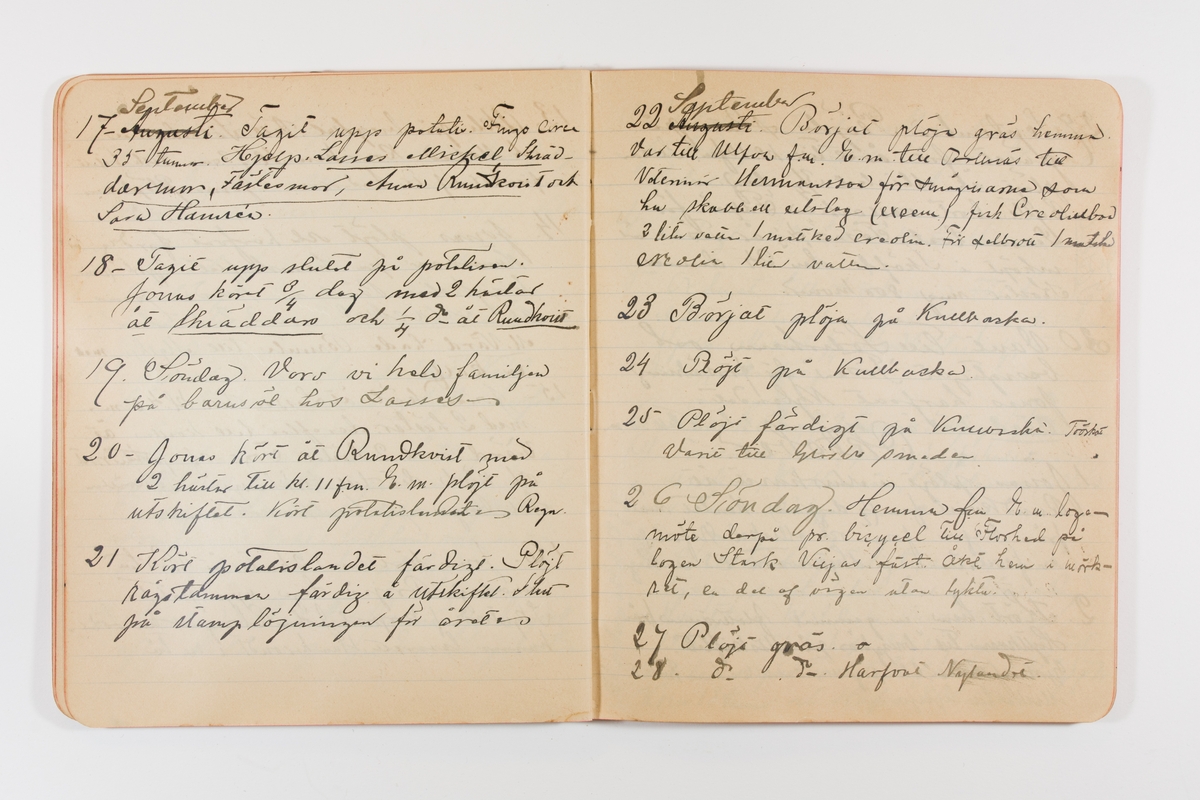 September
17- Augusti. Tagit upp potatis. Fingo circa
35 tunnor. Hjelp. Lasses Mickel, Skräd-
darmor, Fästesmor, Anna Rundkvist och
Sara Hamrén.
18- Tagit upp slutet på potatisen.
Jonas kört 3/4 dag med 2 hästar
åt Skräddars och 1/4 d:o åt Rundkvist
19. Söndag. Voro vi hela familjen
på barnsöl hos Lasses
20- Jonas kört åt Rundkvist med
2 hästar till kl. 11 fm. E.m. plöjt på
utskiftet. Kört potatislandet Regn.
21 Kört potatislandet färdigt. Plöjt
färdig å utskiftet. Slut
på plöjningen för året
September
22 Augusti. Börjat plöja gräs hemma.
Var till fm. E.m. till till
Hermansson för smågrisarna som
ha skabb ett utslag (exem) fick Creolinbad
3 liter vatten 1 matsked creolin. För 1 matsked
creolin 1 liter vatten.
23 Börjat plöja på Kullbacka.
24 Plöjt på Kullbacka.
25 Plöjt färdigt på
Varit till smeden
26 Söndag. Hemma fm. E.m. loge-
möte derpå pr. bicycel till Florhed på
logen Stark Viljas fäst. Åkt hem i mörk-
ret, en del af vägen utan lykta.
27 Plöjt gräs.
28. d:o d:o Harfvat Nylandet.